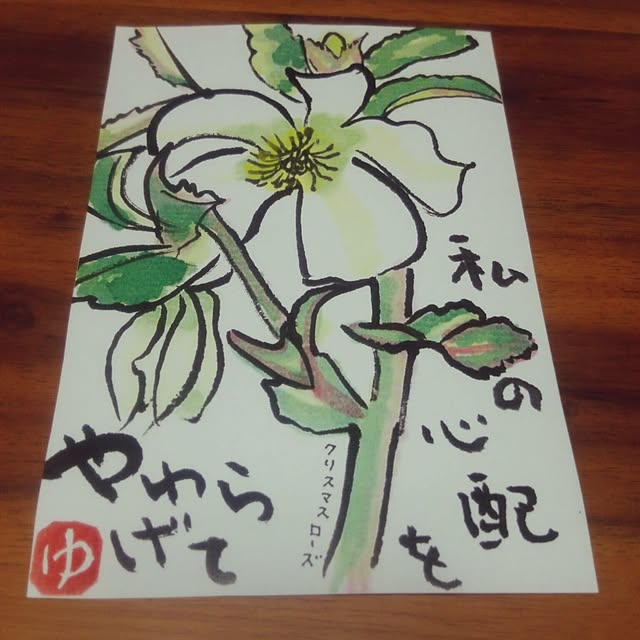 私の心配を
やわら
げて
クリスマスローズ
ゆ